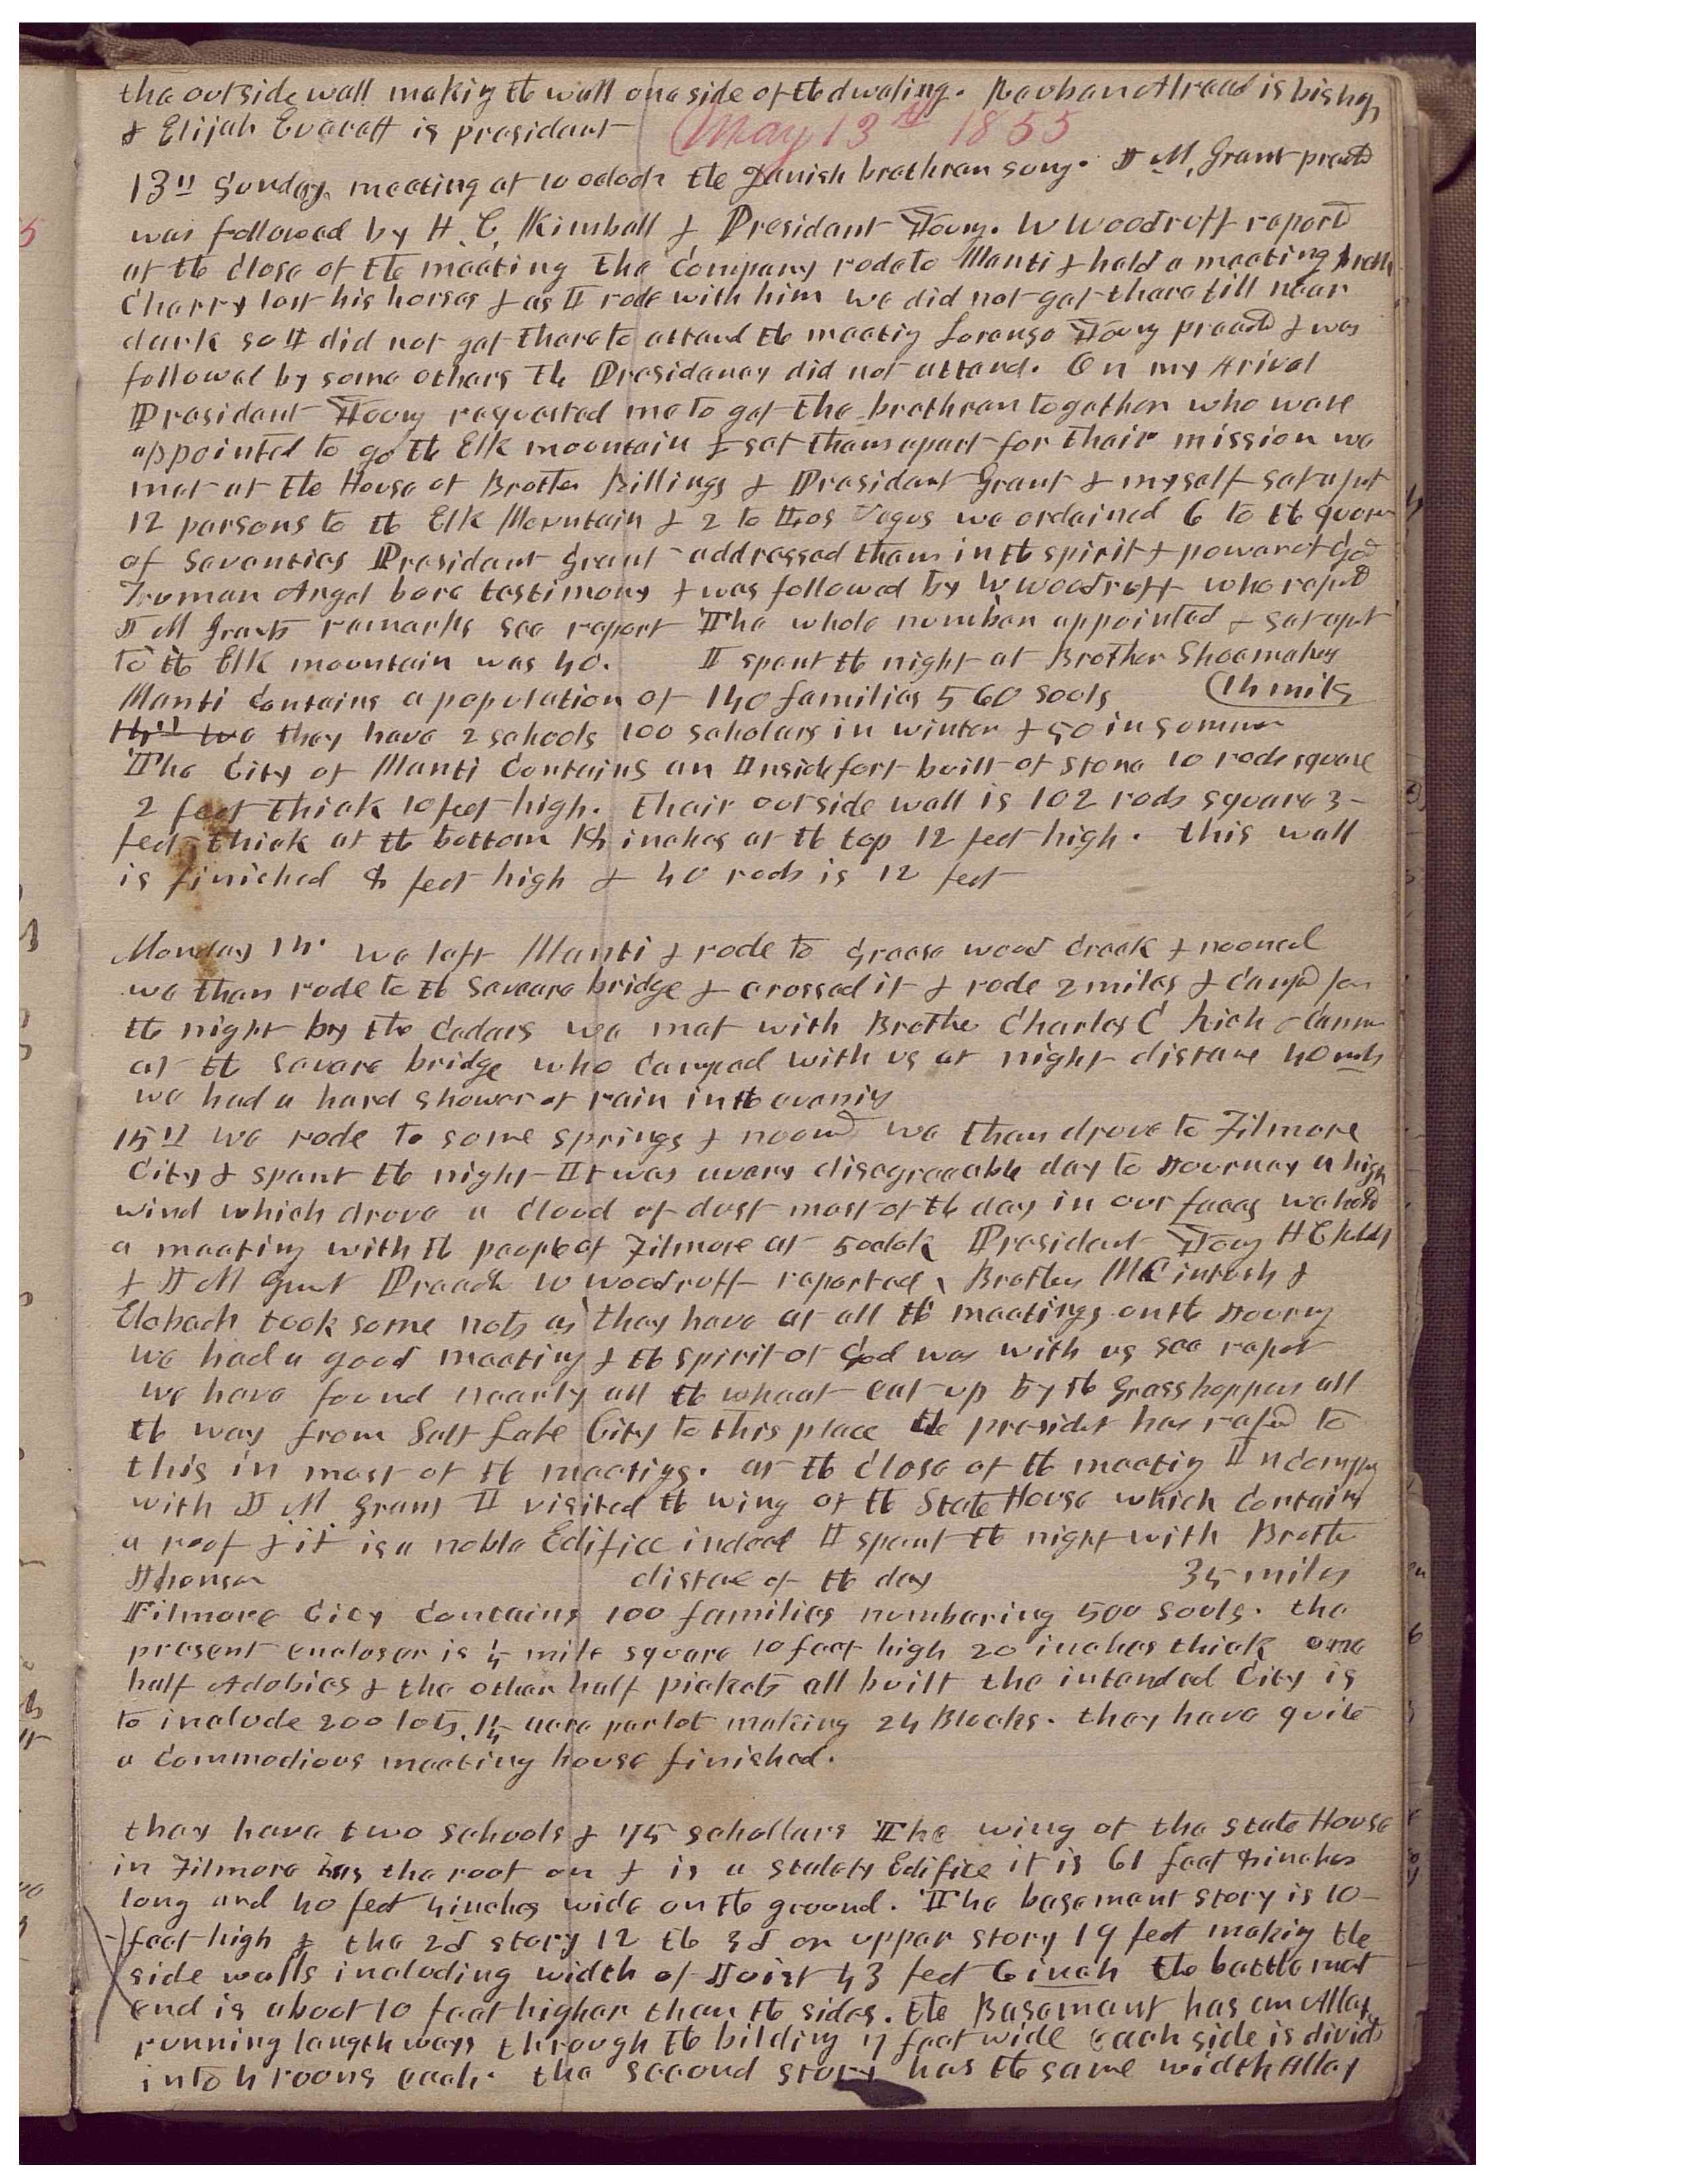 the outside wall making the wall one side of the dwaling. Reuben Allread is bishop
& Elijah Everett is president
(May 13th 1855
13th Sunday meeting at 10 oclock the Danish brethren sung. J M. Grant preachd
was followed by H. C. Kimball & President Young. W Woodruff reportd
at the close of the meeting the company rode to Manti & held a meeting Broth
Cherry lost his horses & as I rode with him we did not get there till near
dark so I did not get there to attend the meetig Lorenzo Young preachd & was
followed by some others The Presidency did not attend. On my Arival
President Young requested me to get the brethren together who ware
appointed to go the Elk mountain & set them apart for their mission we
met at the House of Brother Billings & President Grant & myself set apart
12 persons to the Elk Mountain & 2 to Los Vegus we ordained 6 to the quorum
of Seventies President Grant addressed them in the spirit & power of God
Truman Angel bore testimony & was followed by W Woodruff who repotd
J M Grants remarks see report The whole number appointed & set apart
to the Elk mountain was 40. I spent the night at Brother Shoemakers
Manti contains a population of 140 families 560 souls (14 miles
14th we they have 2 schools 100 scholars in winter & 50 in summer
The City of Manti contains an Inside fort built of stone 10 rods square
2 feet thick 10 feet high. their outside wall is 102 rods square 3
feet thick at the bottom 18 inches at the top 12 feet high. this wall
is finished 8 feet high & 40 rods is 12 feet
Monday 14. we left Manti & rode to Grease wood Creek & nooned
we then rode to the Seveare bridge & crossed it & rode 2 miles & campd for
the night by the Cedars we met with Brother Charles C Rich
at the Sevare bridge who camped with us at night distance 40 mls
we had a hard shower of rain in the evenig
15th we rode to some springs & noond we then drove to Filmore
City & spent the night It was a very disagreeable day to Journey a high
wind which drove a cloud of dust most of the day in our faces we held
a meeting with the people of Filmore at 5 oclok President Young H C Kimball
& J M Grant Preach W Woodruff reported, Brothers McIntosh &
took some nots as they have at all the meetings on the Journy
we had a good meeting & the spirit of God was with us see report
we have found nearly all the wheat eat up by the Grasshoppers all
the way from Salt Lake City to this place the president has refered to
this in most of the meetigs. at the close of the meetig In company
with J M Grant I visited the wing of the State House which contains
a roof & it is a noble Edifice indeed I spent the night with Brother
distace of the day 35 miles
Filmore City contains 100 families numbering 500 souls. the
present encloser is 1/4 mile square 10 feet high 20 inches thick one
half Adobies & the other half pickets all built the intended City is
to include 200 lots. 1 1/4 acre per lot making 24 Blocks. they have quite
a commodious meeting house finished.
they have two schools & 75 schollars The wing of the State House
in Filmore has the roof on & is a stately Edifice it is 61 feet 8 inches
long and 40 feet 4 inches wide on the ground. The basement story is 10
feet high & the 2d story 12 the 3d or upper story 19 feet making the
side walls including width of Joist 43 feet 6 inch the battlement
end is about 10 feet higher than the sides. the Basement has an Alley
running lengthways through the bilding 7 feet wide each side is dividd
into 4 rooms each. the second story has the same width Alley